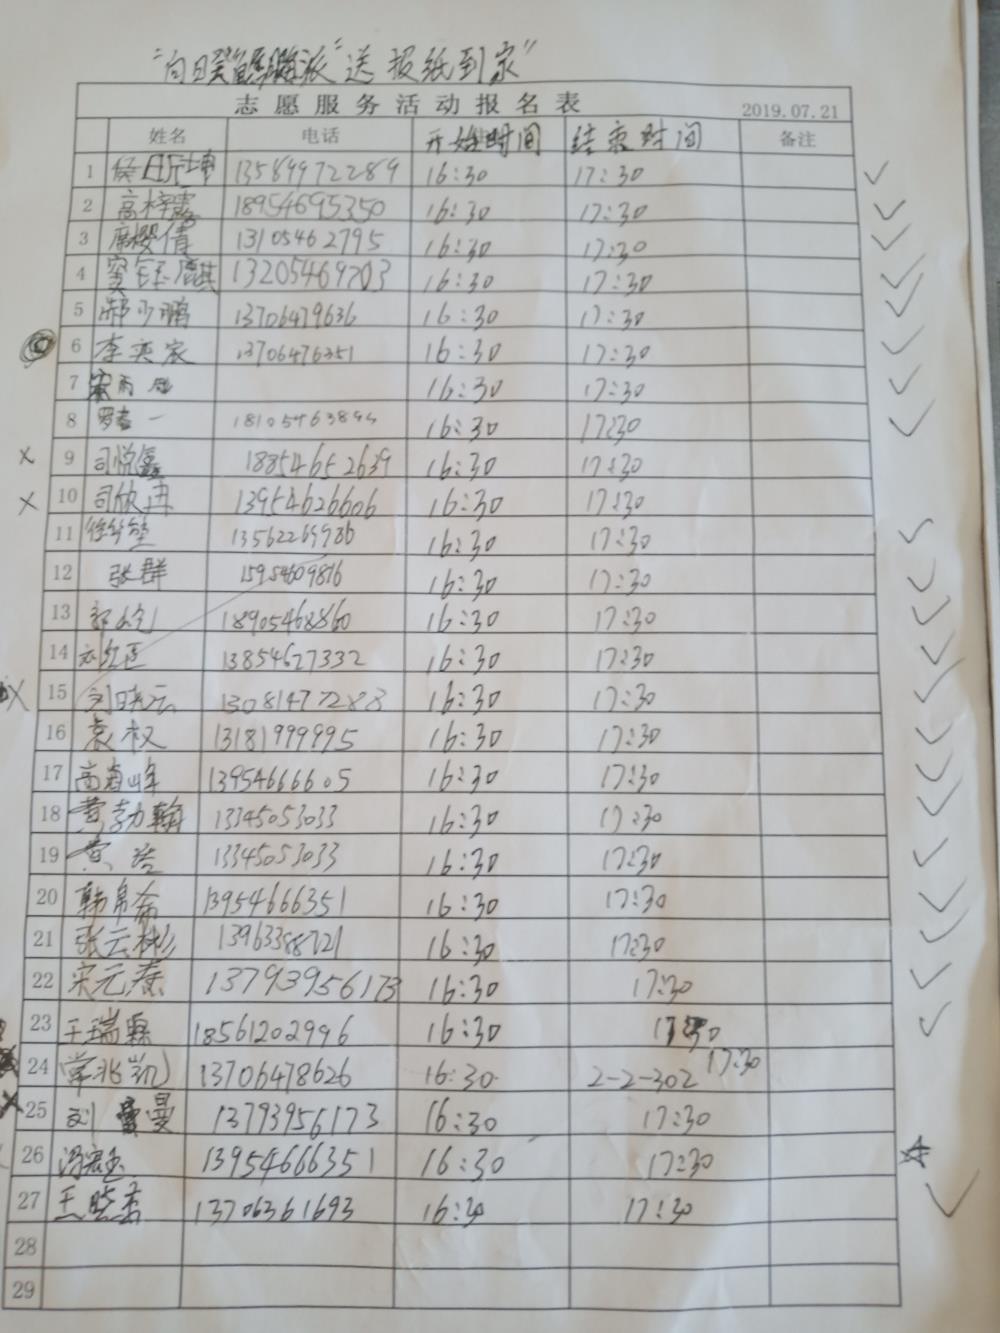 "向日葵海豚派"送报纸到家"
志愿服务活动报名表 2019.07.21
姓名 电话 开始时间 结束时间 备注
1 侯 坤 13589972289 16:30 17:30
2 高梓露 18954695350 16:30 17:30
3 席樱倩 13105462795 16:30 17:30
4 窦钰麒 13205469703 16:30 17:30
5 郝少鹏 13706479636 16:30 17:30
6 李奕宸 13706476351 16:30 17:30
7 宋雨 16:30 17:30
8 罗 一 16:30 17:30
9 司悦鑫 18854652639 16:30 17:30
10 司欣冉 13954626606 16:30 17:30
11 16:30 17:30
12 张群 15954609816 16:30 17:30
13 18905468860 16:30 17:30
14 13854627332 16:30 17:30
15 刘晓云 13081477288 16:30 17:30
16 袁权 13181999995 16:30 17:30
17 高海峰 13954666605 16:30 17:30
18 黄勃翰 13345053033 16:30 17:30
19 黄浩 13345053033 16:30 17:30
20 韩帛希 13954666351 16:30 17:30
21 张云彬 13963388721 16:30 17:30
22 宋元泰 13793956173 16:30 17:30
23 王瑞霖 18561202996 16:30 17:30
24 常兆凯 13706478626 16:30 2-2-302 17:30
25 刘 曼 13793956173 16:30 17:30
26 冯宸玉 13954666351 16:30 17:30
27 王晓杰 13706361693 16:30 17:30
28
29